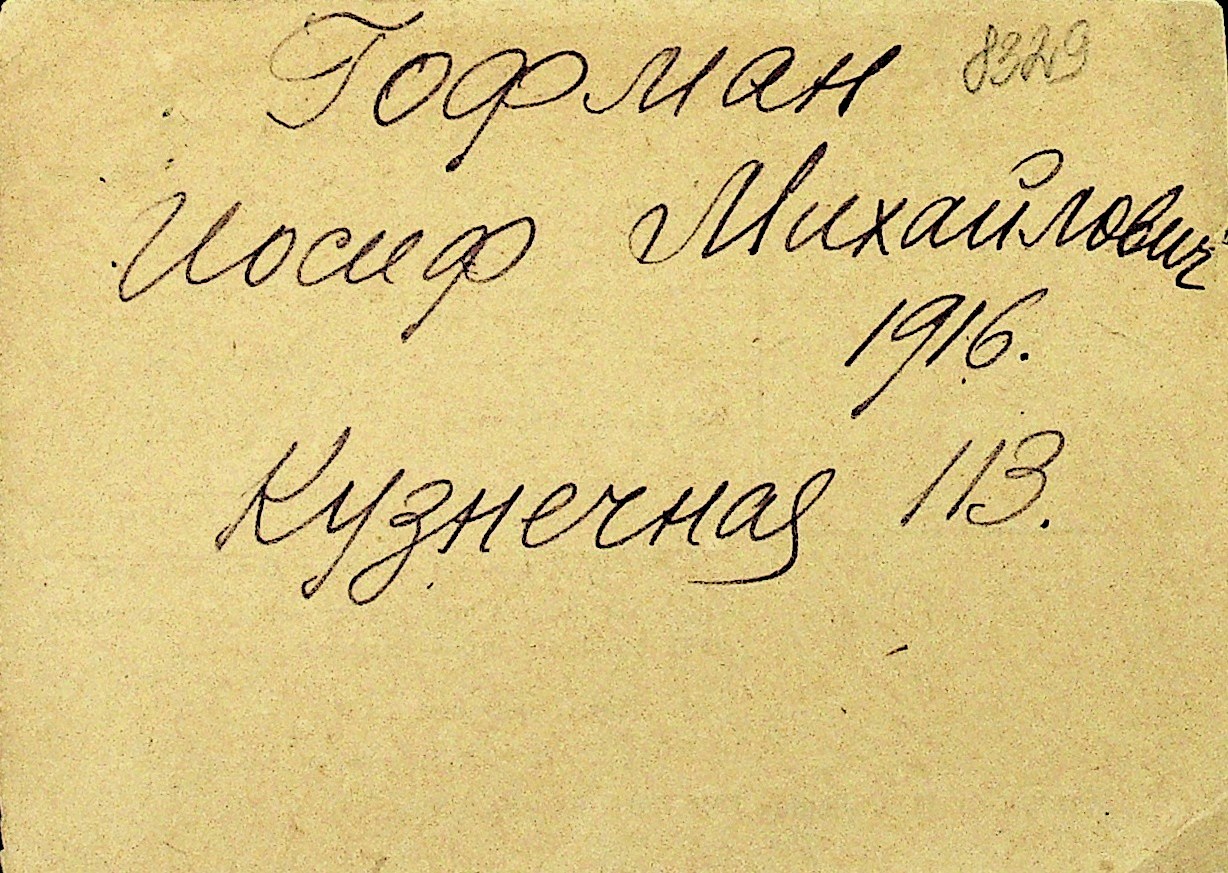 Гофман 8329
Иосиф Михайлович
1916.
Кузнечная 113.